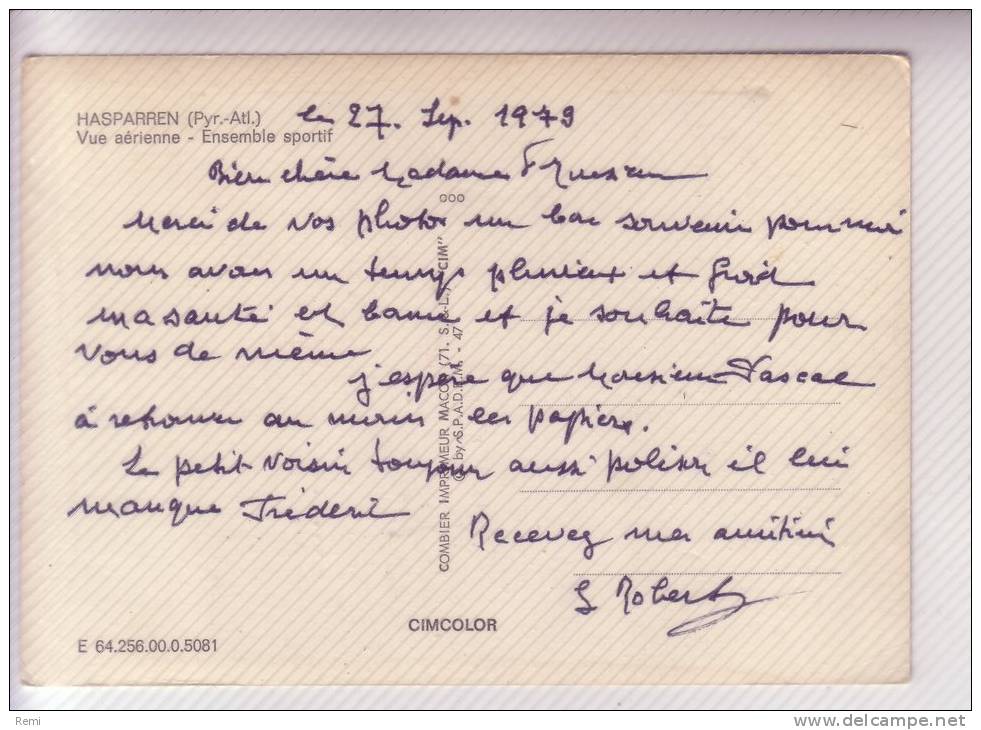 HASPARREN (Pyr.-Atl.)
Vue aérienne - Ensemble sportif
le 27. Sep. 1979
Bien chère Madame
Merci de vos photos un bon souvenir pour moi
nous avons un temps pluvieux et froid
ma santé et bonne et je souhaite pour
vous de même
j'espère que Monsieur Pascal
à retrouver au moins les papiers.
Le petit voisin toujours aussi polisson il lui
manque Fréderic
Recevez mes amitiés
S Robert
COMBIER IMPRIMEUR MACON (71. S.-&-L.) "CIM"
© by S.P.A.D.E.M. - 47
CIMCOLOR
E 64.256.00.0.5081
Remi
www.delcampe.net